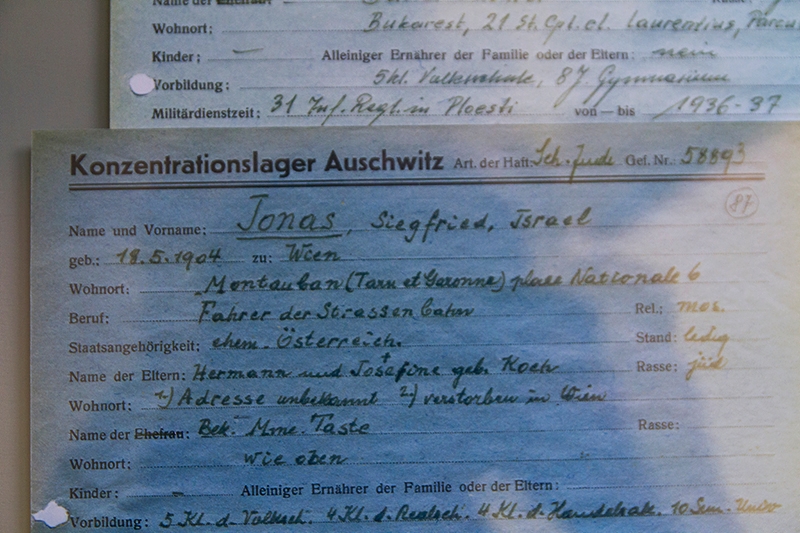 Wohnort: Bukarest, 21 St. Cpt. cl. Laurentius, Parcul
Kinder: — Alleiniger Ernährer der Familie oder der Eltern: nein
Vorbildung: 5kl. Volksschule, 8 J. Gymnasium
Militärdienstzeit: 31 Inf. Regt. in Ploesti von — bis 1936-37
Konzentrationslager Auschwitz Art. der Haft: Sch. Jude Gef. Nr.: 58893
87
Name und Vorname: Jonas, Siegfried, Israel
geb.: 18.5.1904 zu: Wien
Wohnort: Montauban (Tarn et Garonne) place Nationale 6
Beruf: Fahrer der Strassenbahn Rel.: mos.
Staatsangehörigkeit: ehem. Österreich. Stand: ledig
Name der Eltern: Hermann und Josefine geb. Koch Rasse: jüd
Wohnort: 1.) Adresse unbekannt 2.) verstorben in Wien
Name der Ehefrau: Bek. Mme. Taste Rasse:
Wohnort: wie oben
Kinder: — Alleiniger Ernährer der Familie oder der Eltern:
Vorbildung: 5 Kl. d. Volksch. 4 Kl. d. Realsch. 4 Kl. d. Handelsak. 10 Sem. Univ